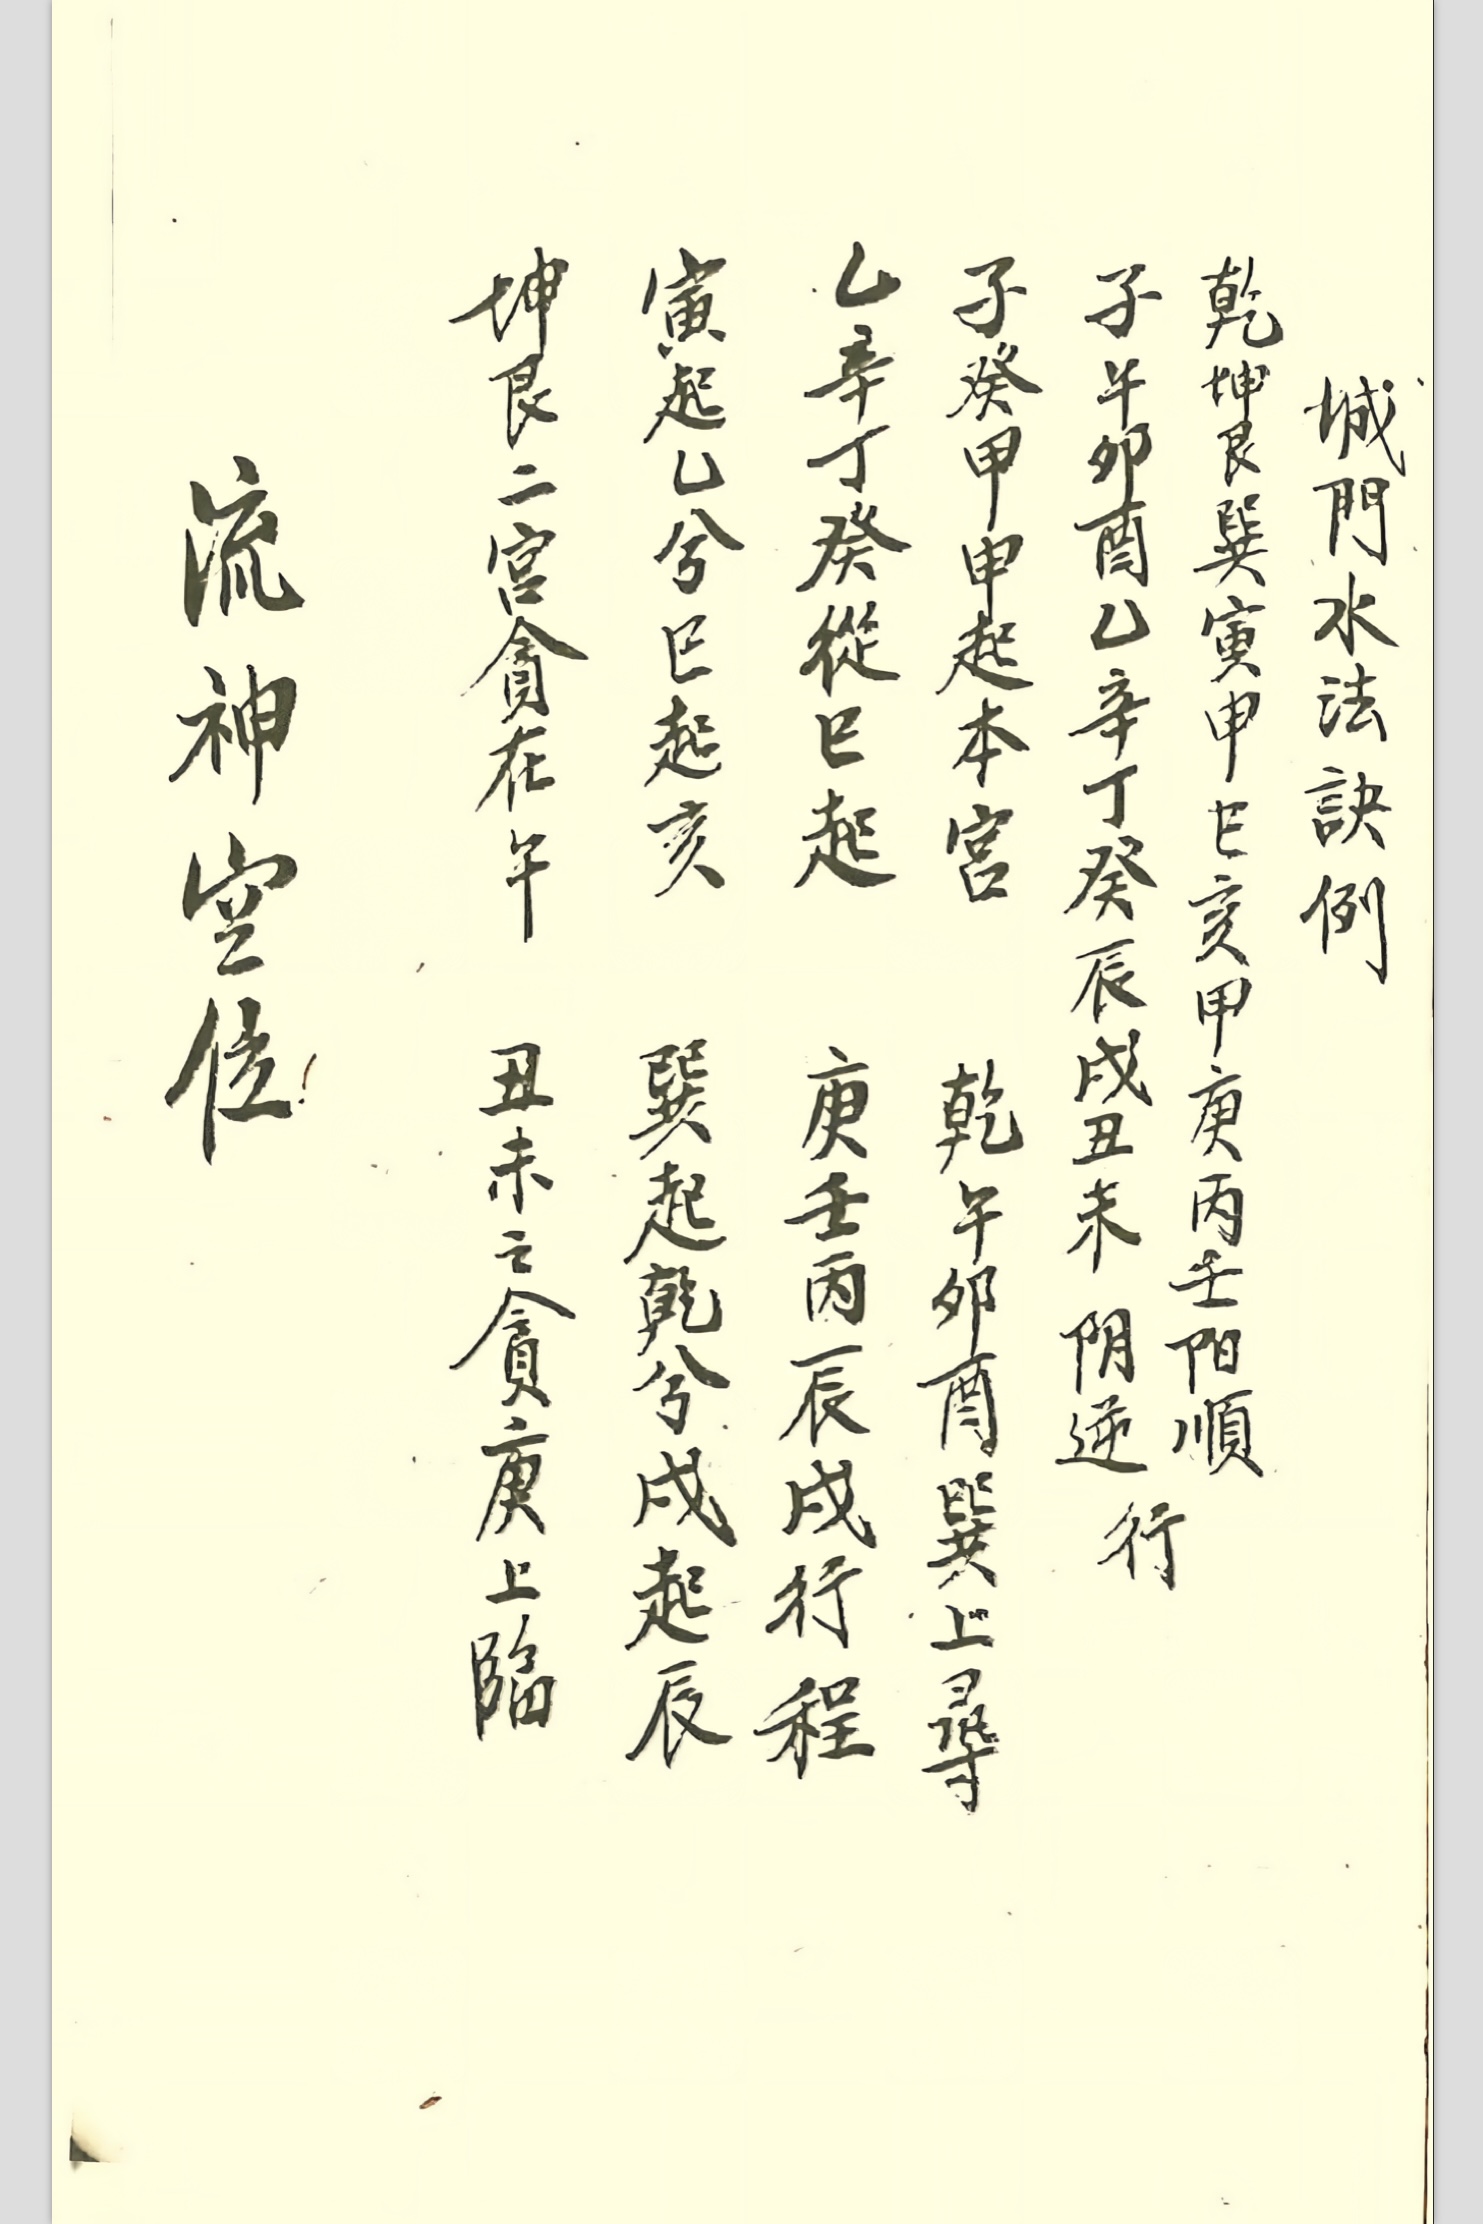 城門水法訣例
乾坤艮巽寅申巳亥甲庚丙壬阳順
子午卯酉乙辛丁癸辰戌丑未阴逆行
子癸甲申起本宮　乾午卯酉巽上尋
乙辛丁癸從巳起　庚壬丙辰戌行程
寅起乙兮巳起亥　巽起乾兮戌起辰
坤艮二宮貪在午　丑未之貪庚上臨
流神空位